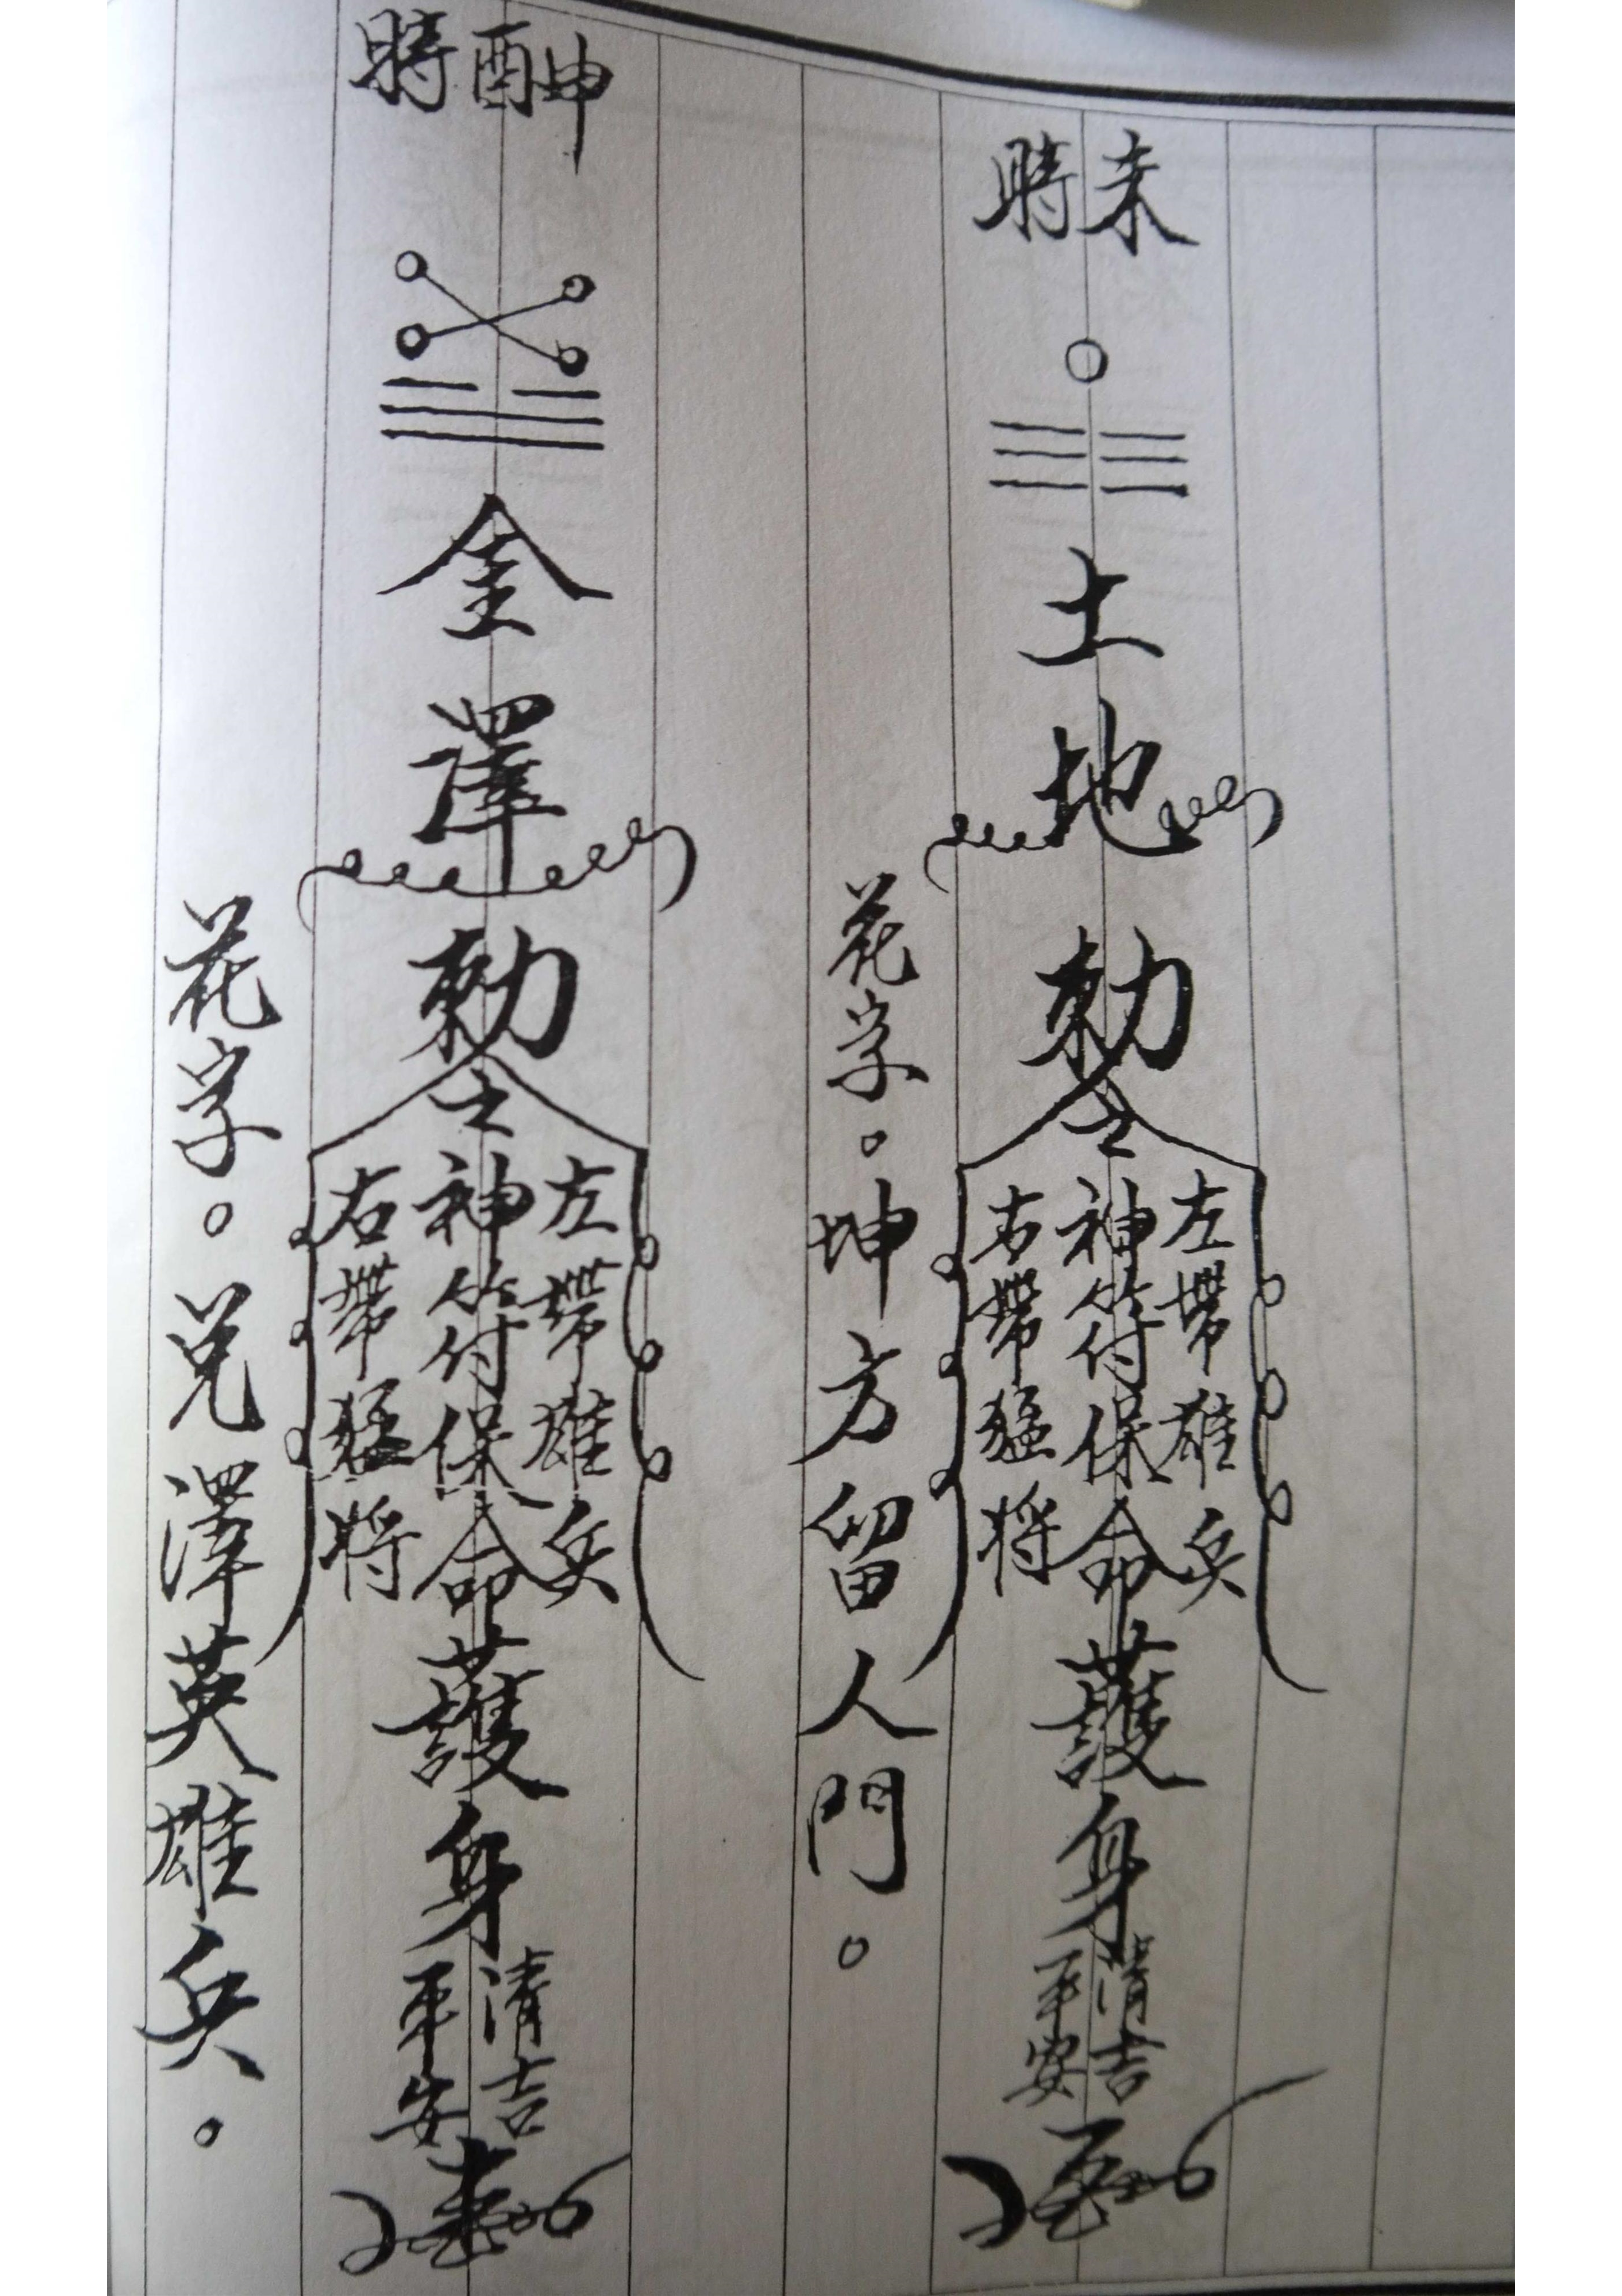 未時
土地
勅令
左帶雄兵
神符保命
右帶猛將
護身
清吉
平安
花字。坤方留人門。
酉時
金澤
勅令
左帶雄兵
神符保命
右帶猛將
護身
清吉
平安
花字。兌澤英雄兵。